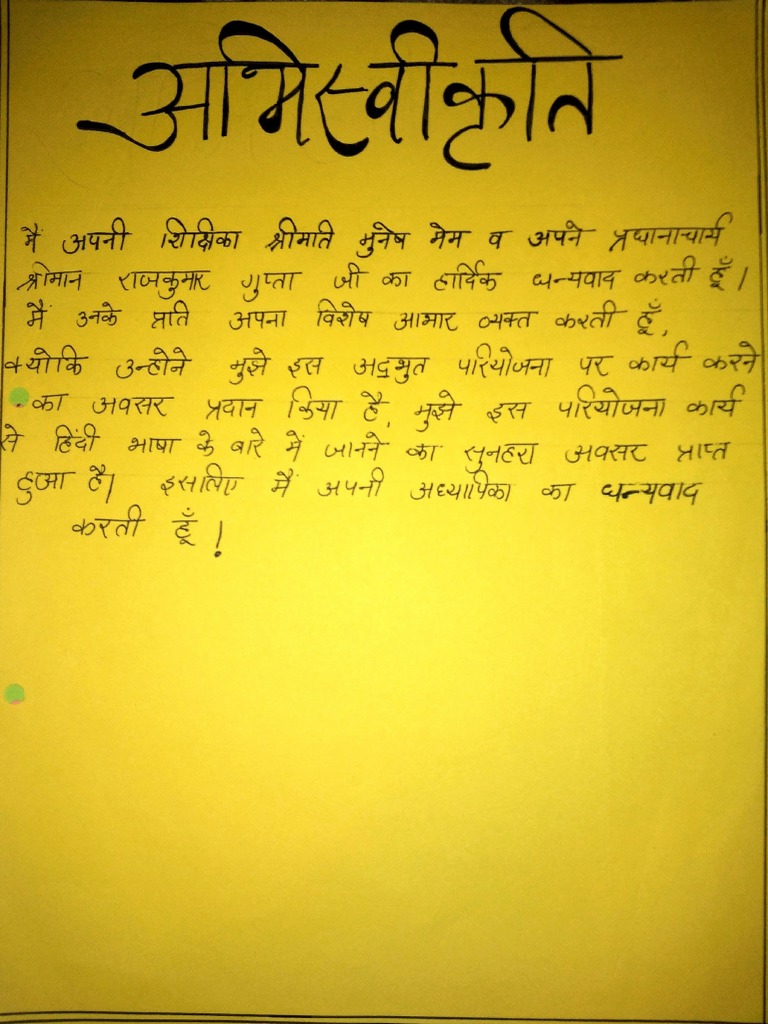 अभिस्वीकृति
मैं अपनी शिक्षिका श्रीमति मुनेष मेम व अपने प्रधानाचार्य
श्रीमान राजकुमार गुप्ता जी का हार्दिक धन्यवाद करती हूँ।
मैं उनके प्रति अपना विशेष आभार व्यक्त करती हूँ,
क्योकि उन्होने मुझे इस अद्वभुत परियोजना पर कार्य करने
का अवसर प्रदान किया है, मुझे इस परियोजना कार्य
से हिंदी भाषा के बारे में जानने का सुनहरा अवसर प्राप्त
हुआ है। इसलिए मैं अपनी अध्यापिका का धन्यवाद
करती हूँ!